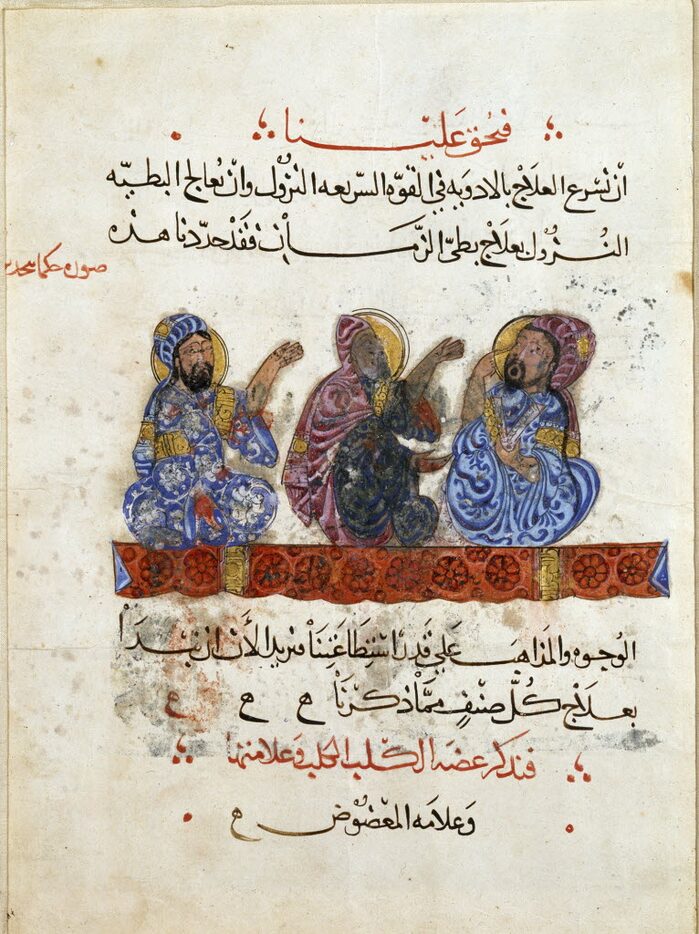 فحق علينا
ان نسرع العلاج بالادويه في القوه السريعه النزول وان نعالج البطيه
النزول بعلاج بطئ الزمان فقد حددنا هذه
صوره حكما
الوجوه والمذاهب علي قدر استطاعتنا فنريد الأن ان نبدا
بعلاج كُلّ صنفٍ ممّا ذكرنا ه ه ه
فنذكر عضه الكلب الكلب وعلامتها
وعلامه المعضوض ه